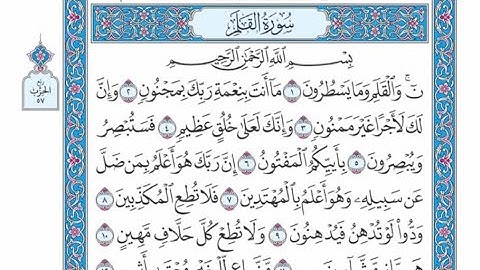 سُورَةُ القَلَمِ
بِسْمِ اللَّهِ الرَّحْمَٰنِ الرَّحِيمِ
نٓ ۚ وَالْقَلَمِ وَمَا يَسْطُرُونَ ١ مَا أَنتَ بِنِعْمَةِ رَبِّكَ بِمَجْنُونٍ ٢ وَإِنَّ
لَكَ لَأَجْرًا غَيْرَ مَمْنُونٍ ٣ وَإِنَّكَ لَعَلَىٰ خُلُقٍ عَظِيمٍ ٤ فَسَتُبْصِرُ
وَيُبْصِرُونَ ٥ بِأَييِّكُمُ الْمَفْتُونُ ٦ إِنَّ رَبَّكَ هُوَ أَعْلَمُ بِمَن ضَلَّ
عَن سَبِيلِهِ وَهُوَ أَعْلَمُ بِالْمُهْتَدِينَ ٧ فَلَا تُطِعِ الْمُكَذِّبِينَ ٨
وَدُّوا لَوْ تُدْهِنُ فَيُدْهِنُونَ ٩ وَلَا تُطِعْ كُلَّ حَلَّافٍ مَّهِينٍ ١٠
ربع
الحزب
٥٧